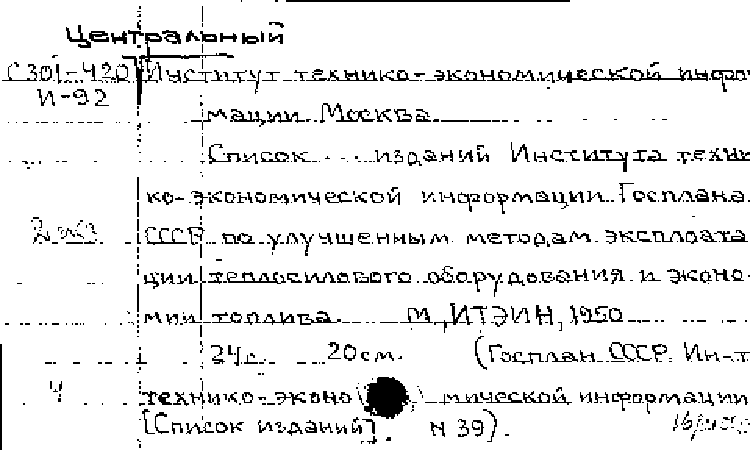 Центральный
С301-420 Институт технико-экономической инфор
И-92
мации. Москва.
Список ... изданий Института техни
ко-экономической информации Госплана
2 экз СССР по улучшенным методам эксплоата
ции теплосилового оборудования и эконо-
мии топлива. М., ИТЭИН, 1950
24с. 20см. (Госплан СССР. Ин-т
4 технико-эконо мической информации
[Список изданий]. N 39).